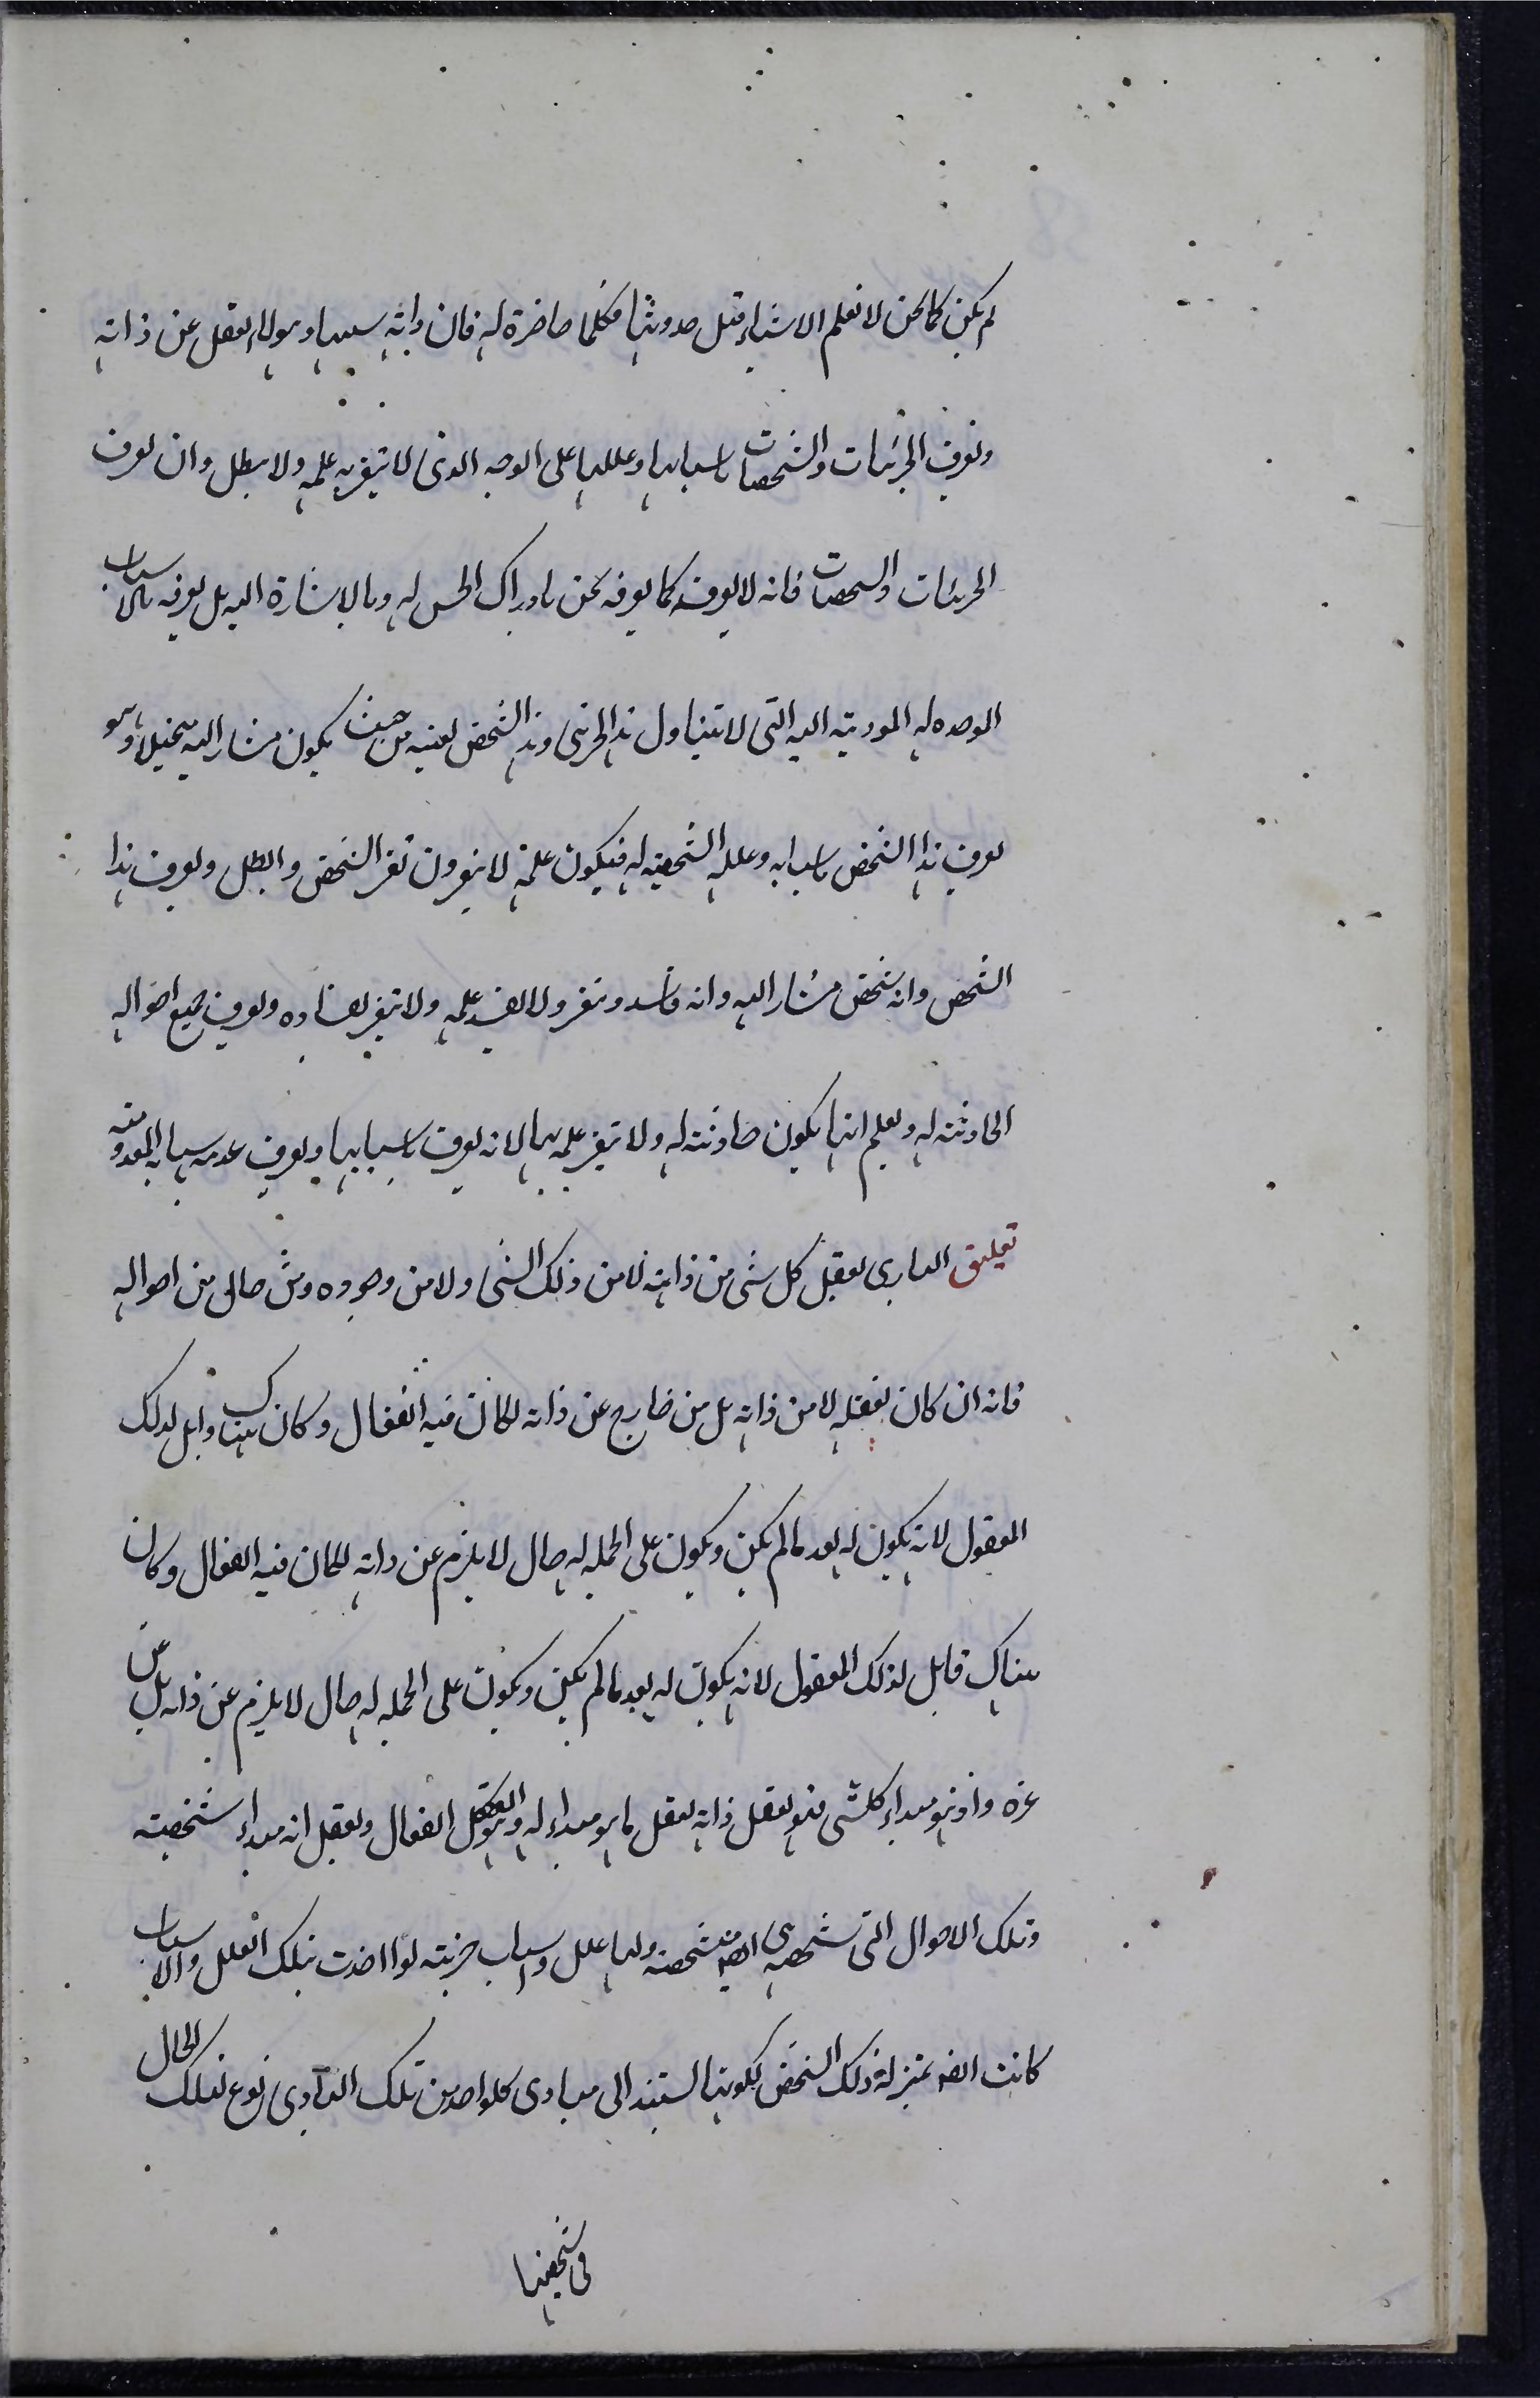 لم يكن كما نحن لا نعلم الاشياء قبل حدوثها فكلها حاضرة له فان ذاته سببها وهو لا يعقل عن ذاته
ويعرف الجزئيات والشخصيات باسبابها وعللها على الوجه الذى لا يتغير به علمه ولا يبطل وان يعرف
الجزئيات والشخصيات فانه لا يعرفه كما يعرفه نحن بادراك الحس له وبالاشارة اليه بل يعرفه بالاسباب
الموجده له الموديه اليه التى لا تتناول هذا الجزئى وهذا الشخص بعينه من حيث يكون مشار اليه متخيلا وهو
يعرف هذا الشخص باسبابه وعلله الشخصيه له فيكون علمه لا يتغير وان تغير الشخص وابطل ويعرف هذا
الشخص وانه شخص مشار اليه وانه فاسد ومتغير ولا يفسد علمه ولا يتغير بفساده ويعرف جميع احواله
الحادثه له ويعلم انها يكون حادثه له ولا يتغير علمه بها لانه يعرف باسبابها ويعرف عدمه باسبابه المعدومه
تعليق البارى يعقل كل شى من ذاته لا من ذلك الشى ولا من وجوده ومن حالى من احواله
فانه ان كان تعقله لا من ذاته بل من خارج عن ذاته لكان فيه انفعال وكان هناك قابل لذلك
المعقول لانه يكون له بعد ما لم يكن ويكون على الجمله له حال لا يلزم عن ذاته لكان فيه انفعال وكان
هناك قابل لذلك المعقول لانه يكون له بعد ما لم يكن ويكون على الجمله له حال لا يلزم عن ذاته بل عن
غيره واذ هو مبداء كلشى فهو يعقل ذاته يعقل ما هو مبداء له وهو العقل الفعال ويعقل انه مبداء شخصيته
وتلك الاحوال التى شخصيه ايضه شخصيه ولها علل واسباب جزئيه لو اخذت بتلك العلل والاسباب
كانت ايضه بمنزلة ذلك الشخص لكونها استند الى مبادى كلواحد من تلك المبادى نوع لتلك الحال
فى شخصها